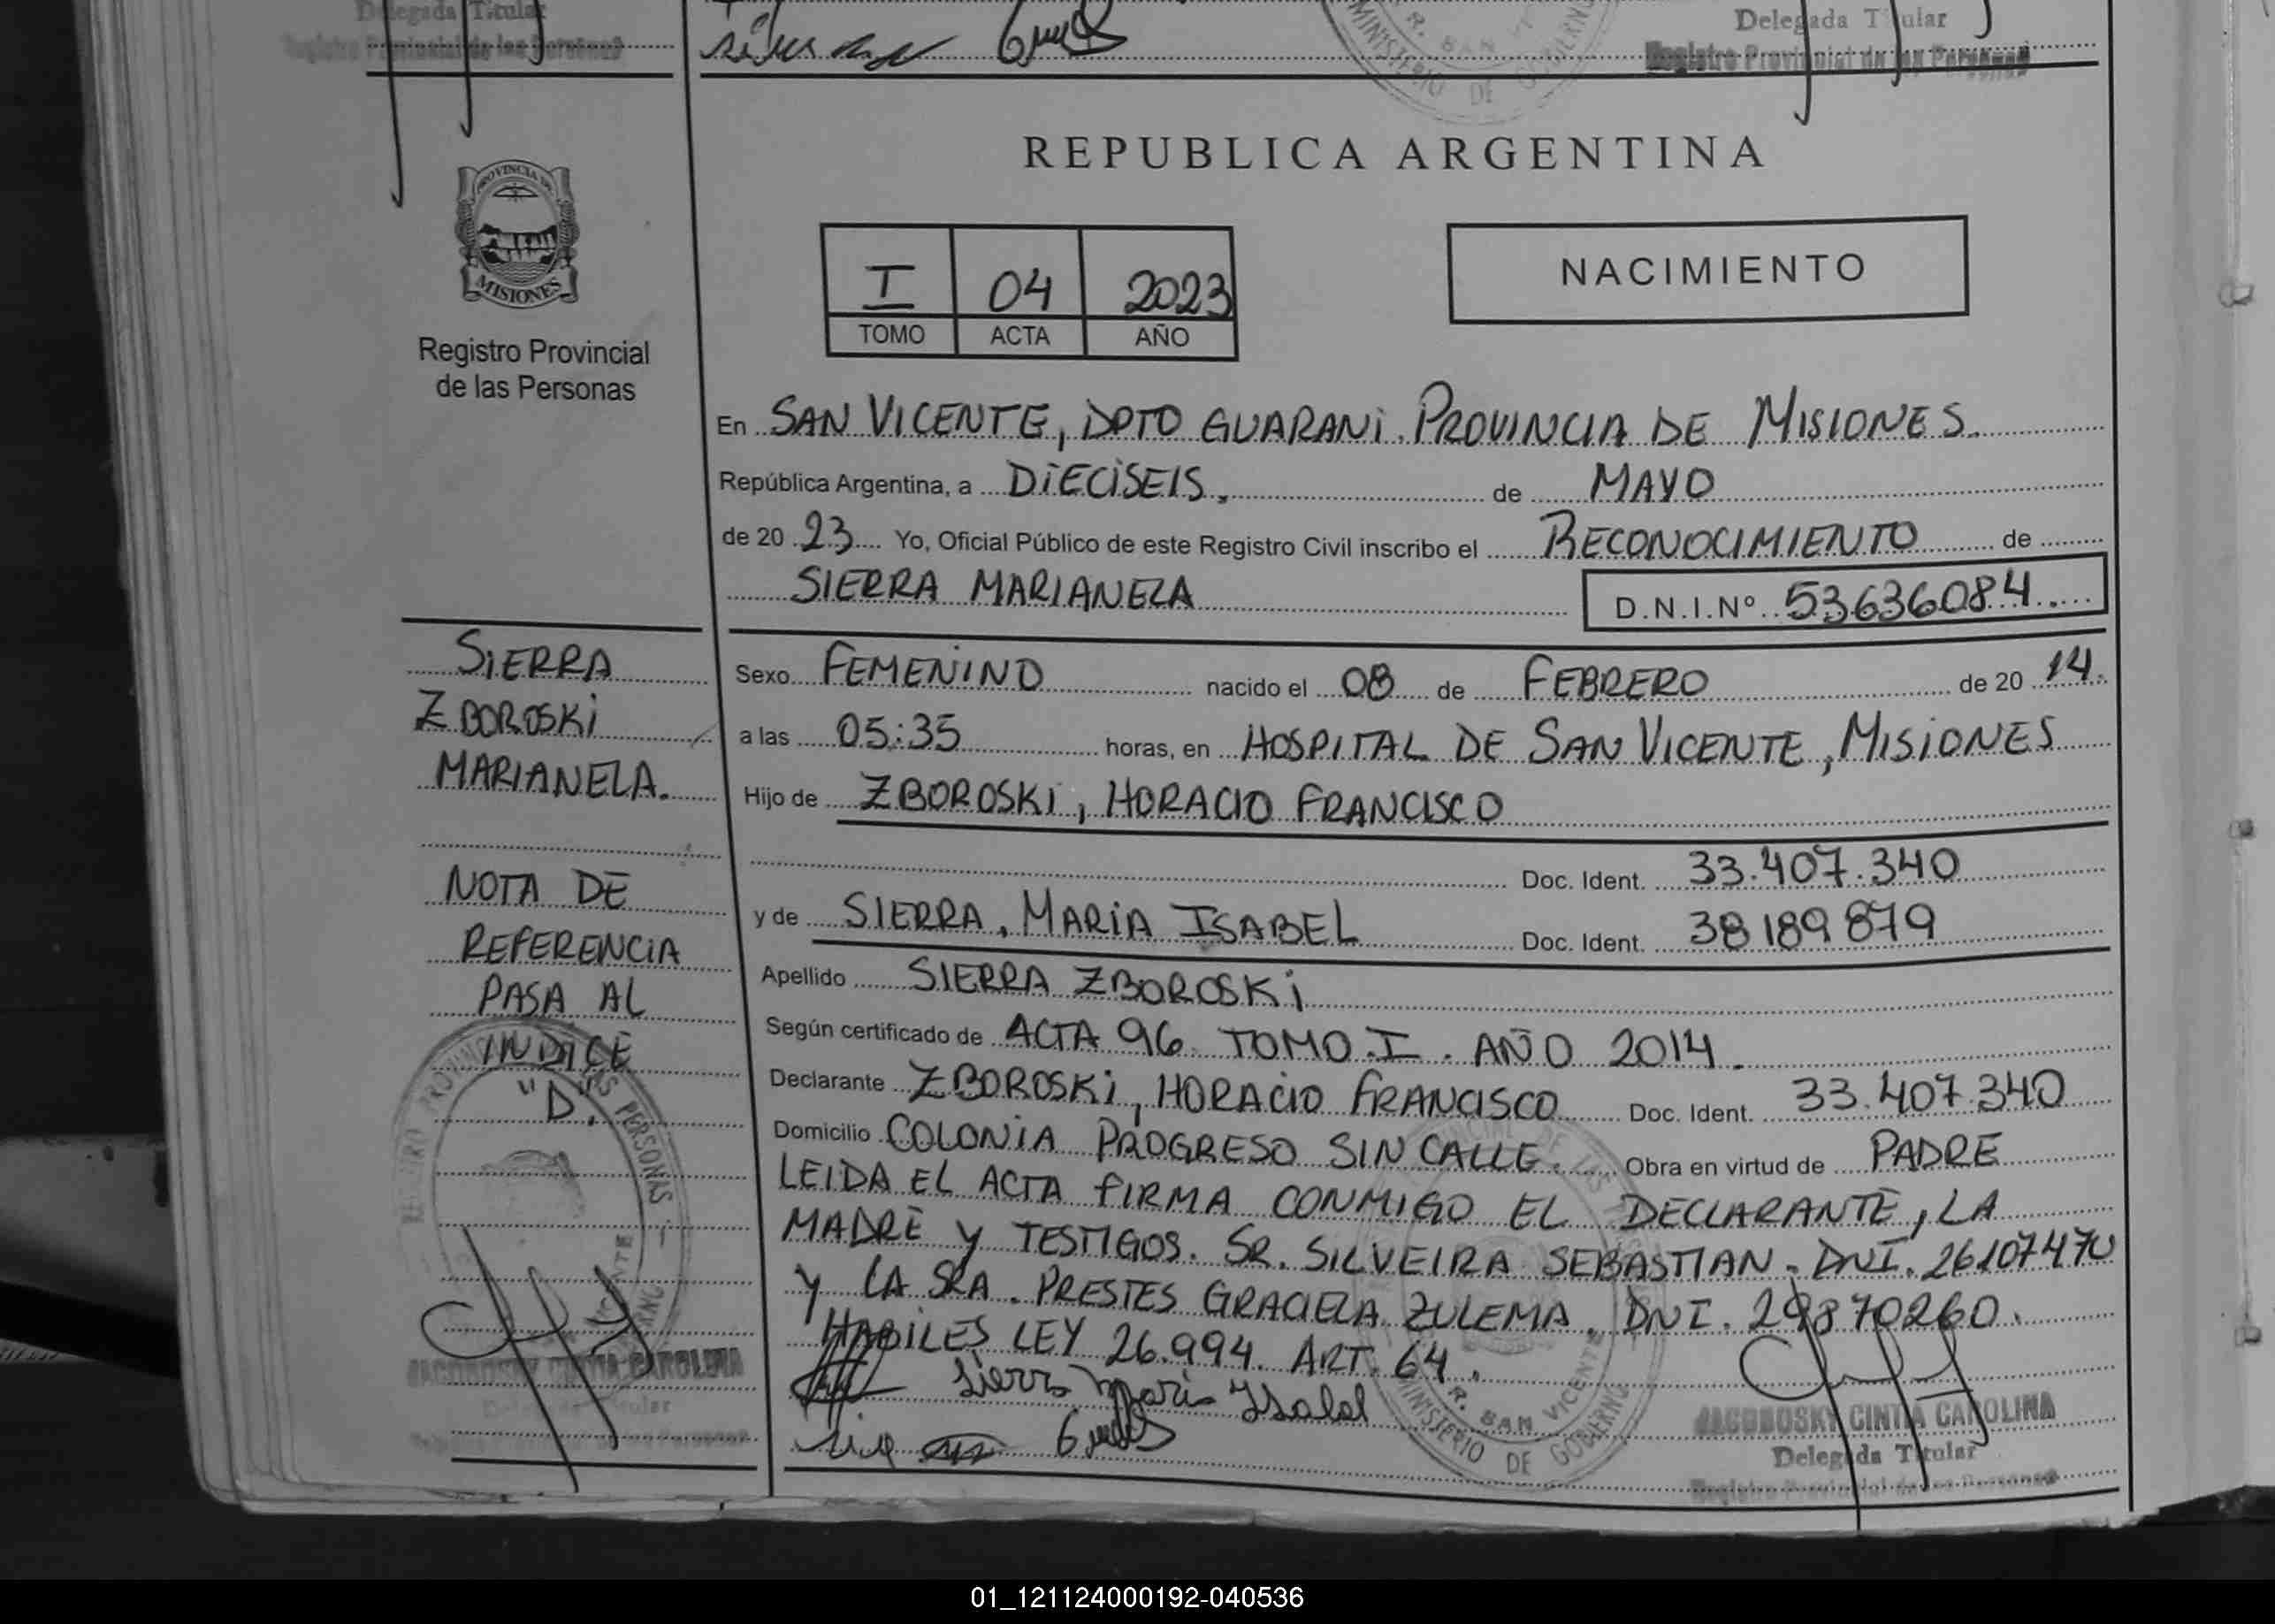 Delegada Titular
Registro Provincial de las Personas
Delegada Titular
Registro Provincial de las Personas
MINISTERIO DE GOBIERNO
R. SAN
REPUBLICA ARGENTINA
PROVINCIA DE
MISIONES
Registro Provincial
de las Personas
I 04 2023
TOMO ACTA AÑO
NACIMIENTO
En SAN VICENTE, DPTO GUARANI. PROVINCIA DE MISIONES.
República Argentina, a DIECISEIS, de MAYO
de 20 23 Yo, Oficial Público de este Registro Civil inscribo el RECONOCIMIENTO de
SIERRA MARIANELA D.N.I.Nº 53636084.
SIERRA
ZBOROSKI
MARIANELA.
NOTA DE
REFERENCIA
PASA AL
INDICE
"D".
Sexo FEMENINO nacido el 08 de FEBRERO de 20 14.
a las 05:35 horas, en HOSPITAL DE SAN VICENTE, MISIONES
Hijo de ZBOROSKI, HORACIO FRANCISCO
Doc. Ident. 33.407.340
y de SIERRA, MARIA ISABEL Doc. Ident. 38189879
Apellido SIERRA ZBOROSKI
Según certificado de ACTA 96. TOMO.I. AÑO 2014.
Declarante ZBOROSKI, HORACIO FRANCISCO Doc. Ident. 33.407.340
Domicilio COLONIA PROGRESO SIN CALLE. Obra en virtud de PADRE
LEIDA EL ACTA FIRMA CONMIGO EL DECLARANTE, LA
MADRE Y TESTIGOS. SR. SILVEIRA SEBASTIAN. DNI. 26107470
Y LA SRA. PRESTES GRACIELA ZULEMA. DNI. 29870260.
HABILES LEY 26.994. ART. 64.
Sierra Maria Isabel
JACOBOSKY CINTIA CAROLINA
Delegada Titular
Registro Provincial de las Personas
JACOBOSKY CINTIA CAROLINA
Delegada Titular
Registro Provincial de las Personas
R. SAN VICENTE
MINISTERIO DE GOBIERNO
01_121124000192-040536